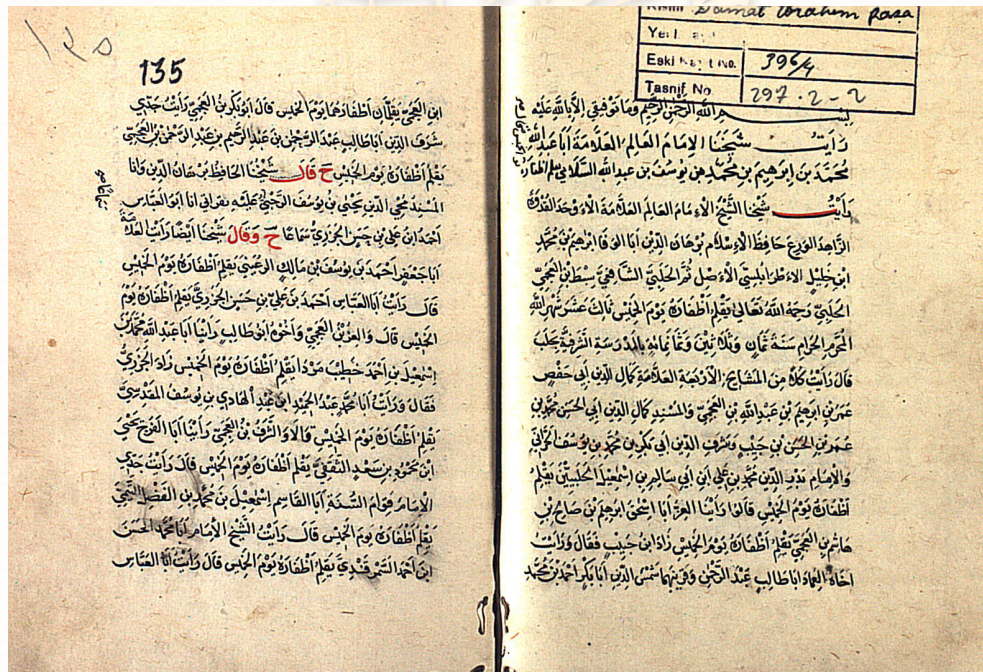 Damat İbrahim Paşa
Eski No. 396/4
Tasnif No 297.2-2
بسم الله الرحمن الرحيم وما توفيقي الا بالله عليه
رَأَيْتُ شيخنا الإمام العالم العلامة أبا عبد الله
محمد بن ابراهيم بن محمد بن يوسف بن عبد الله السلامي يقلم اظفاره
رَأَيْتُ شيخنا الشيخ الإمام العالم العلامة الأوحد القدوة
الزاهد الورع حافظ الإسلام برهان الدين أبا الوفا ابراهيم بن محمد
ابن خليل الأطرابلسي الأصل ثم الحلبي الشافعي سبط بن العجمي
الحلبي رحمه الله تعالى يقلم أظفاره يوم الخميس ثالث عشر شهر الله
المحرم الحرام سنة ثمان وثلاثين وثمانمائة بالمدرسة الشرفية بحلب
قال رأيت كلا من المشايخ الأربعة العلامة كمال الدين أبي حفص
عمر بن ابراهيم بن عبد الله بن العجمي والمسند كمال الدين أبي الحسن محمد بن
عمر بن الحسن بن حبيب وشرف الدين أبي بكر بن محمد بن يوسف الحراني
والإمام بدر الدين محمد بن علي ابن أبي سالم بن اسمعيل الحلبيين يقلم
أظفاره يوم الخميس قالوا رأينا العز أبا اسحق ابراهيم بن صالح بن
هاشم بن العجمي يقلم أظفاره يوم الخميس زاد ابن حبيب فقال ورأيت
أخاه العماد أبا طالب عبد الرحمن وقريبهما شمس الدين أبا بكر أحمد بن محمد
١٣٥
135
ابن العجمي يقلمان أظفارهما يوم الخميس قال أبو بكر بن العجمي رأيت جدي
شرف الدين أبا طالب عبد الرحمن بن عبد الرحيم بن عبد الرحمن بن العجمي
يقلم أظفاره يوم الخميس ح قال شيخنا الحافظ برهان الدين وانا
المسند محيي الدين يحيى بن يوسف الرحبي عليه بقراءتي انا أبو العباس
أحمد ابن علي بن حسن الجزري سماعا ح وقال شيخنا أيضا رأيت العلامة
أبا جعفر أحمد بن يوسف بن مالك الرعيني يقلم أظفاره يوم الخميس
قال رأيت أبا العباس أحمد بن علي بن حسن الجزري يقلم أظفاره يوم
الخميس قال والعز بن العجمي وأخوه أبو طالب رأينا أبا عبد الله محمد بن
إسمعيل بن أحمد خطيب مردا يقلم أظفاره يوم الخميس زاد الجزري
فقال ورأيت أبا محمد عبد الحميد ابن عبد الهادي بن يوسف المقدسي
يقلم أظفاره يوم الخميس قالا والشرف بن العجمي رأينا أبا الفرج يحيى
ابن محمود بن سعد الثقفي يقلم أظفاره يوم الخميس قال رأيت جدي
الإمام قوام السنة أبا القاسم إسمعيل بن محمد بن الفضل التيمي
يقلم أظفاره يوم الخميس قال رأيت الشيخ الإمام أبا محمد الحسن
ابن أحمد السمرقندي يقلم أظفاره يوم الخميس قال رأيت أبا العباس